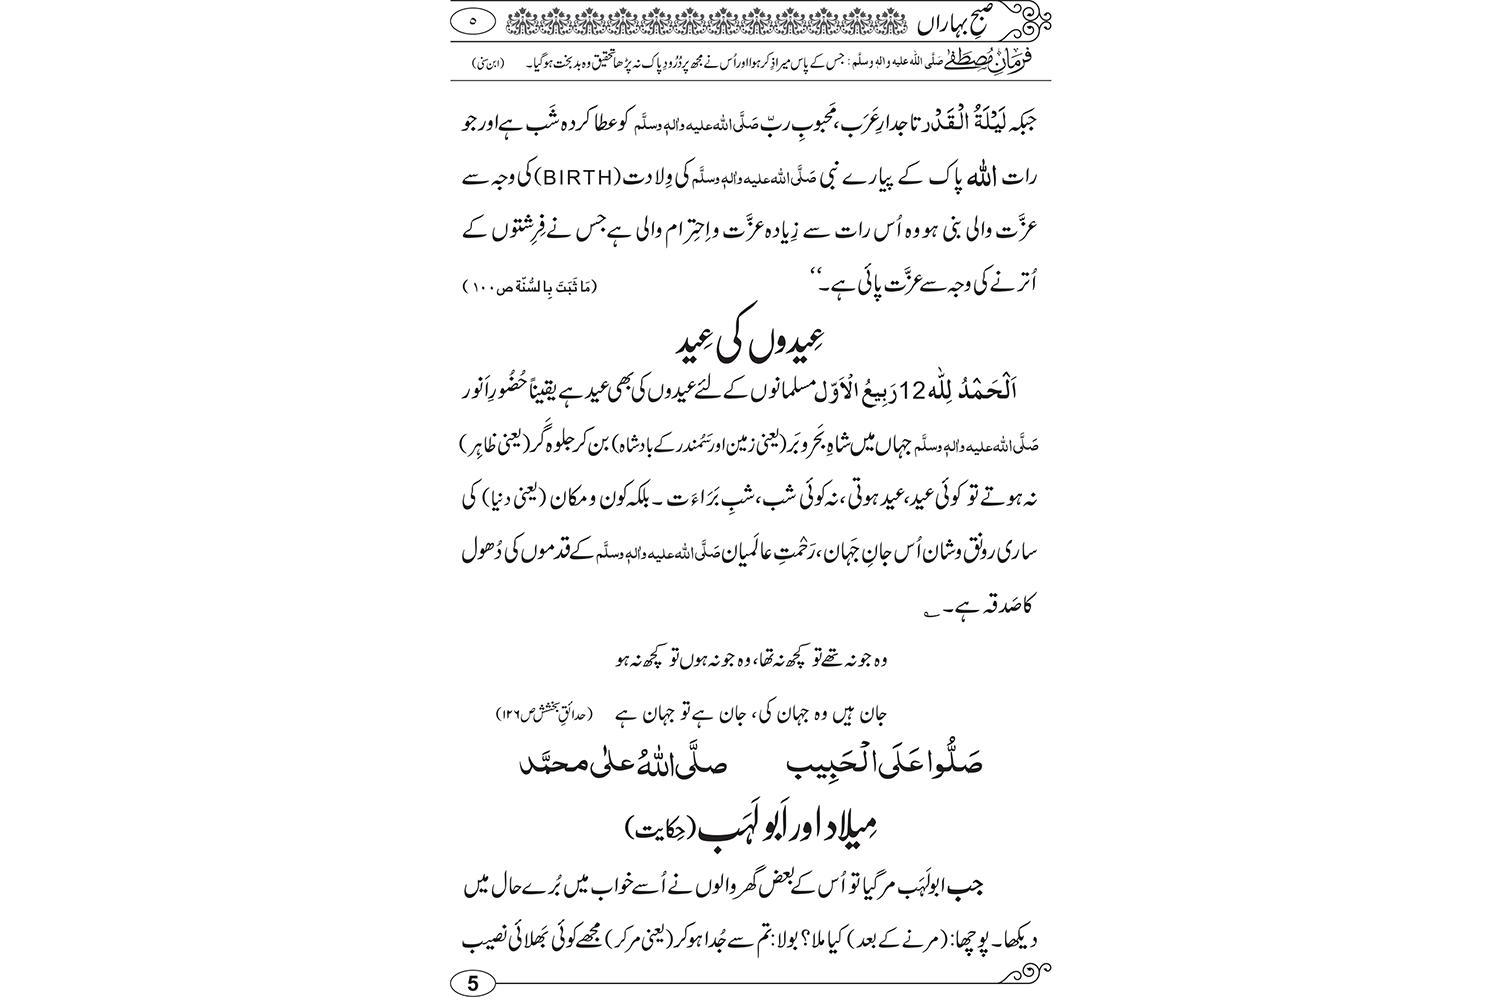 صبحِ بہاراں ۵
فرمانِ مُصطَفٰے صَلَّی اللہ علیہ واٰلہٖ وسلَّم: جس کے پاس میرا ذِکر ہوا اور اُس نے مجھ پر دُرُودِ پاک نہ پڑھا تحقیق وہ بد بخت ہو گیا۔ (ابن سنی)
جبکہ لَیْلَۃُ الْقَدْر تاجدارِ عَرَب، مَحبوبِ ربّ صَلَّی اللہ علیہ واٰلہٖ وسلَّم کو عطا کردہ شَب ہے اور جو
رات اللہ پاک کے پیارے نبی صَلَّی اللہ علیہ واٰلہٖ وسلَّم کی وِلادت (BIRTH) کی وجہ سے
عزَّت والی بنی ہو وہ اُس رات سے زِیادہ عزَّت و اِحتِرام والی ہے جس نے فِرِشتوں کے
اُترنے کی وجہ سے عزَّت پائی ہے۔‘‘ (مَا ثَبَتَ بِالسُّنّۃ ص ۱۰۰)
عِیدوں کی عِید
اَلْحَمْدُ لِلّٰہ 12 رَبِیعُ الْاَوَّل مسلمانوں کے لئے عیدوں کی بھی عید ہے یقیناً حُضُورِ اَنور
صَلَّی اللہ علیہ واٰلہٖ وسلَّم جہاں میں شاہِ بَحر و بَر (یعنی زمین اور سَمُندر کے بادشاہ) بن کر جلوہ گَر (یعنی ظاہِر)
نہ ہوتے تو کوئی عید، عید ہوتی، نہ کوئی شب، شبِ بَرَاءَت۔ بلکہ کون و مکان (یعنی دنیا) کی
ساری رونق و شان اُس جانِ جَہان، رَحْمتِ عالَمیان صَلَّی اللہ علیہ واٰلہٖ وسلَّم کے قدموں کی دُھول
کا صَدقہ ہے۔ ؎
وہ جو نہ تھے تو کچھ نہ تھا، وہ جو نہ ہوں تو کچھ نہ ہو
جان ہیں وہ جہان کی، جان ہے تو جہان ہے (حدائقِ بخشش ص ۱۲۶)
صَلُّوا عَلَی الْحَبِیب صلَّی اللّٰہُ علٰی محمَّد
مِیلاد اور اَبو لَہَب (حِکایت)
جب ابو لَہَب مر گیا تو اُس کے بعض گھر والوں نے اُسے خواب میں بُرے حال میں
دیکھا۔ پوچھا: (مرنے کے بعد) کیا ملا؟ بولا: تم سے جُدا ہو کر (یعنی مر کر) مجھے کوئی بَھلائی نصیب
5